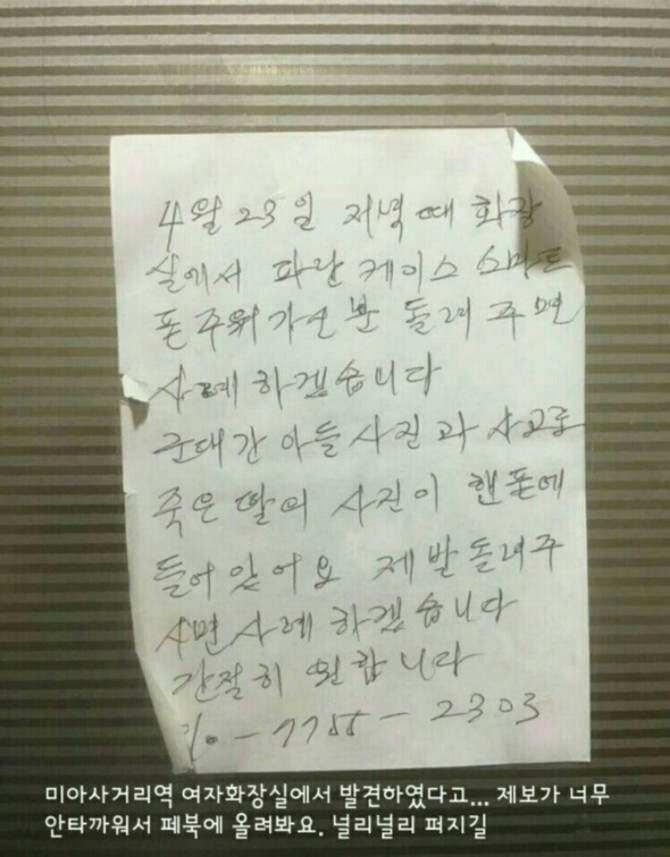 4월 23일 저녁때 화장
실에서 파란 케이스 스마트
폰 주워가신 분 돌려 주면
사례하겠습니다
군대간 아들사진과 사고로
죽은 딸의 사진이 핸폰에
들어 있어요 제발돌려주
시면 사례하겠습니다
간절히 원합니다
010-7755-2303
미아사거리역 여자화장실에서 발견하였다고... 제보가 너무
안타까워서 페북에 올려봐요. 널리널리 퍼지길